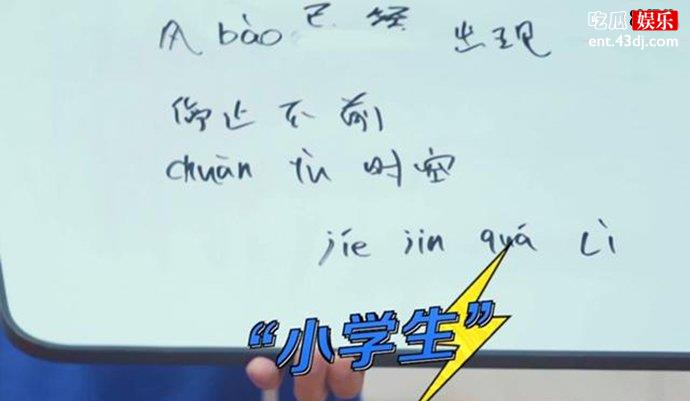 吃瓜娱乐
ent.43dj.com
风 bào 已经 出现
停止不前
chuàn yù 时空
jíe jin quá Lì
“小学生”